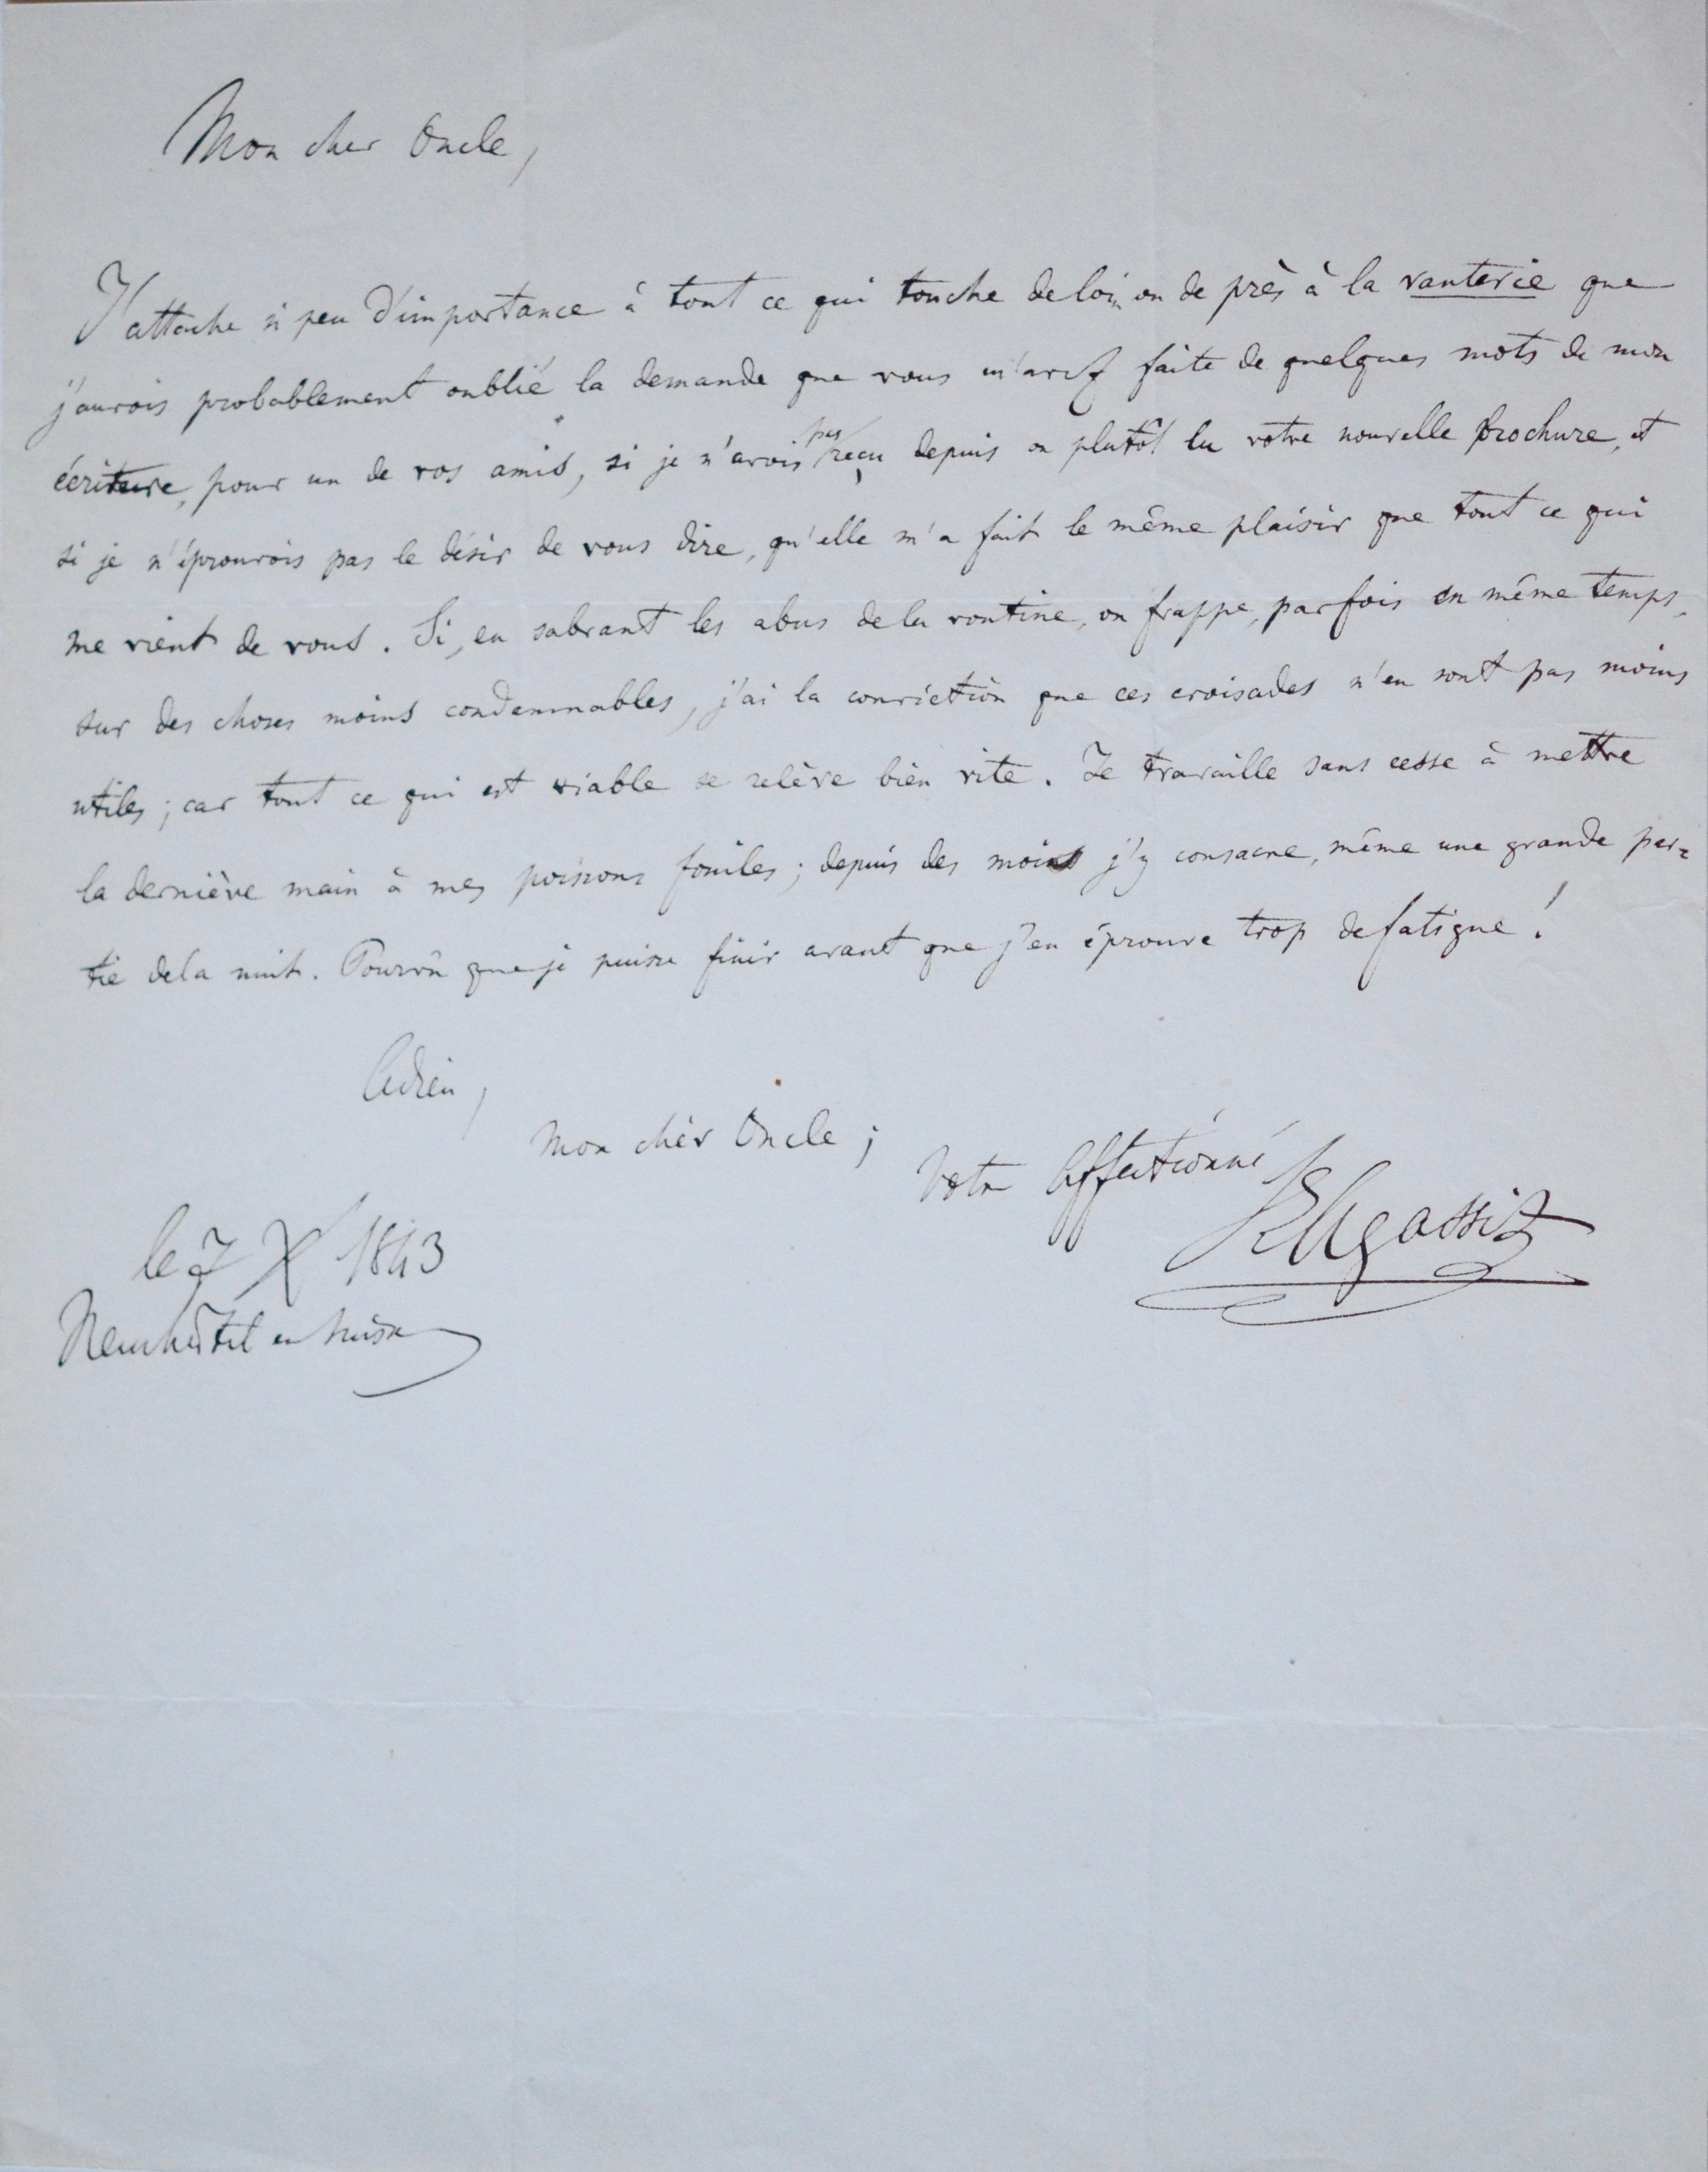 Mon cher Oncle,
J'attache si peu d'importance à tout ce qui touche de loin ou de près à la vanterie que
j'aurois probablement oublié la demande que vous m'avez faite de quelques mots de mon
écriture, pour un de vos amis, si je n'avois pas reçu depuis ou plutôt lu votre nouvelle brochure, et
si je n'éprouvois pas le désir de vous dire, qu'elle m'a fait le même plaisir que tout ce qui
me vient de vous. Si, en sabrant les abus de la routine, on frappe, parfois en même temps,
sur des choses moins condamnables, j'ai la conviction que ces croisades n'en sont pas moins
utiles; car tout ce qui est viable se relève bien vite. Je travaille sans cesse à mettre
la dernière main à mes poissons fossiles; depuis des mois j'y consacre, même une grande par=
tie de la nuit. Pourvû que je puisse finir avant que j'en éprouve trop de fatigue!
Adieu,
mon cher Oncle;
Votre Affectionné
Ls Agassiz
le 7 X 1843
Neuchâtel en Suisse